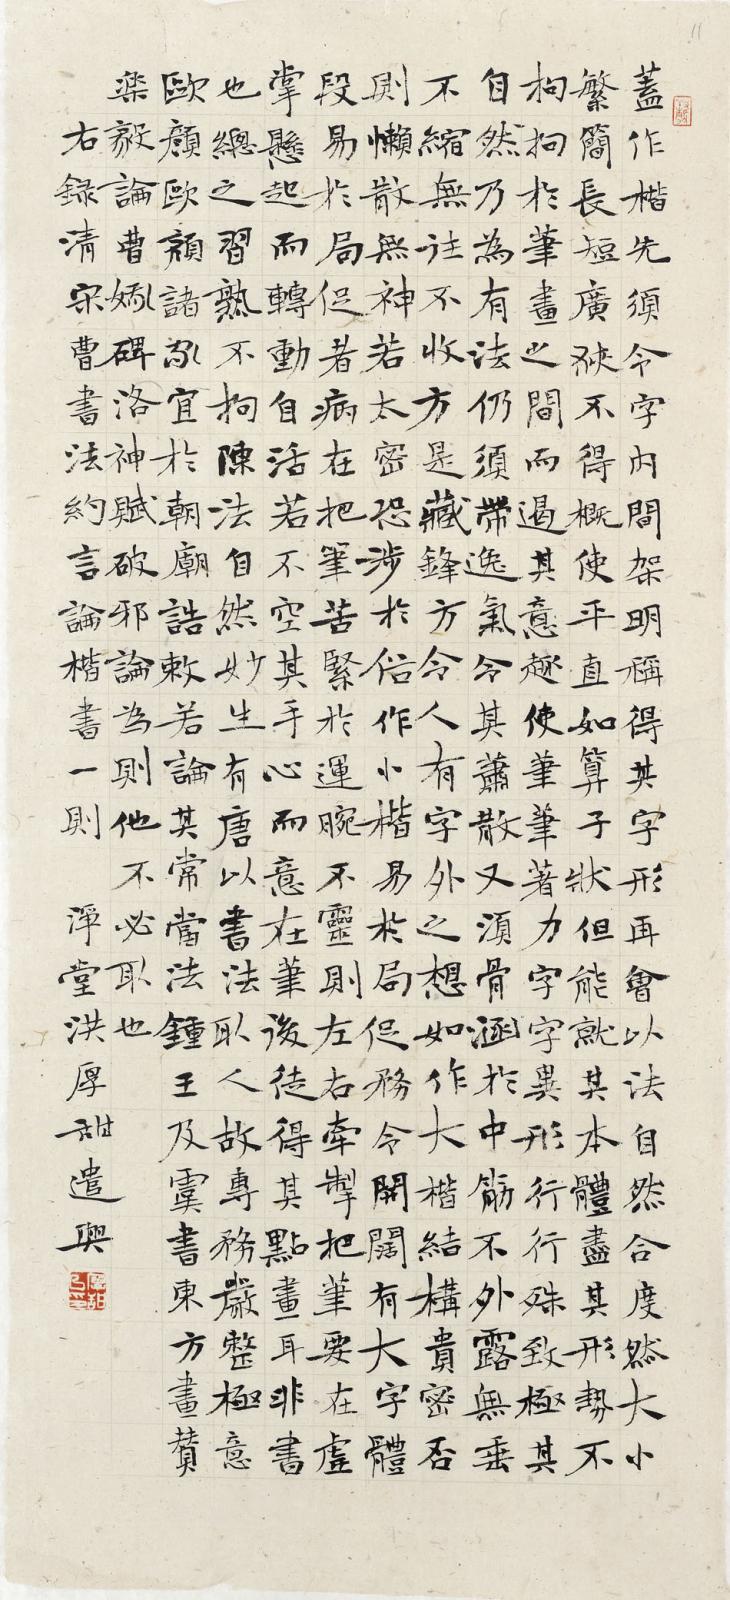 蓋作楷先須令字內間架明稱得其字形再會以法自然合度然大小
繁簡長短廣狹不得概使平直如算子狀但能就其本體盡其形勢不
拘拘於筆畫之間而遏其意趣使筆筆著力字字異形行行殊致極其
自然乃為有法仍須帶逸氣令其蕭散又須骨涵於中筋不外露無垂
不縮無往不收方是藏鋒方令人有字外之想如作大楷結構貴密否
則懶散無神若太密恐涉於俗作小楷易於局促務令開闊有大字體
段易於局促者病在把筆苦緊於運腕不靈則左右牽掣把筆要在虛
掌懸起而轉動自活若不空其手心而意在筆後徒得其點畫耳非書
也總之習熟不拘陳法自然妙生有唐以書法取人故專務嚴整極意
歐顏歐顏諸家宜於朝廟誥敕若論其常當法鍾王及虞書東方畫贊
樂毅論曹娥碑洛神賦破邪論為則他不必取也
右錄清宋曹書法約言論楷書一則 淨堂洪厚甜遣興
厚甜